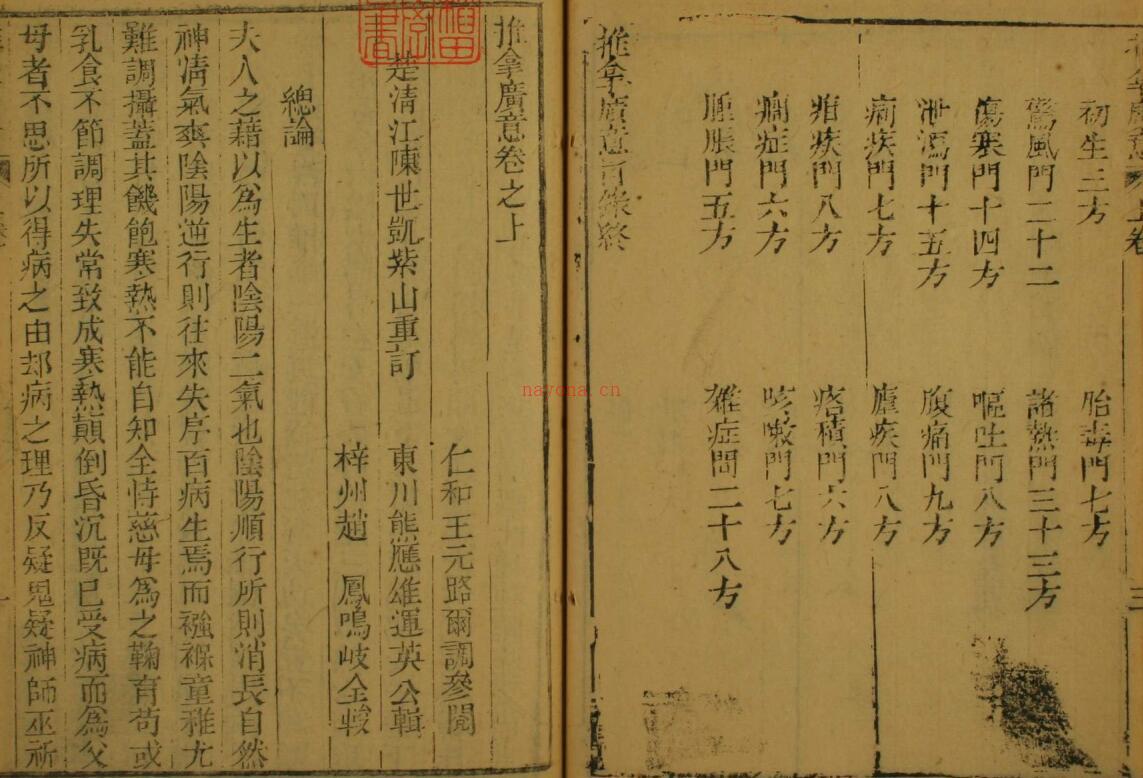 初生三方　胎毒門七方
驚風門二十二　諸熱門三十三方
傷寒門十四方　嘔吐門八方
泄瀉門十五方　腹痛門九方
痢疾門七方　瘧疾門八方
疳疾門八方　痞積門六方
癇症門六方　咳嗽門七方
腫脹門五方　雜症門二十八方
推拿廣意目錄終
推拿廣意卷之上
仁和王元路爾調參閱
楚清江陳世凱紫山重訂　東川熊應雄運英公輯
梓州趙　鳳鳴岐仝較
總論
夫人之藉以為生者陰陽二氣也陰陽順行所則消長自然
神清氣爽陰陽逆行則往來失序百病生焉而襁褓童稚尤
難調攝蓋其饑飽寒熱不能自知全恃慈母為之鞠育苟或
乳食不節調理失常致成寒熱顛倒昏沉既已受病而為父
母者不思所以得病之由却病之理乃反疑鬼疑神師巫祈
navona.cn